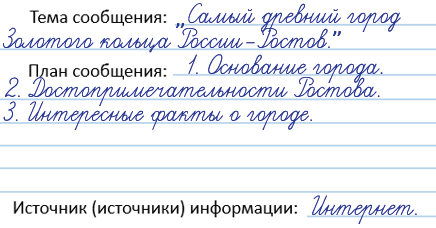 Тема сообщения: „Самый древний город
Золотого кольца России – Ростов."
План сообщения: 1. Основание города.
2. Достопримечательности Ростова.
3. Интересные факты о городе.
Источник (источники) информации: Интернет.